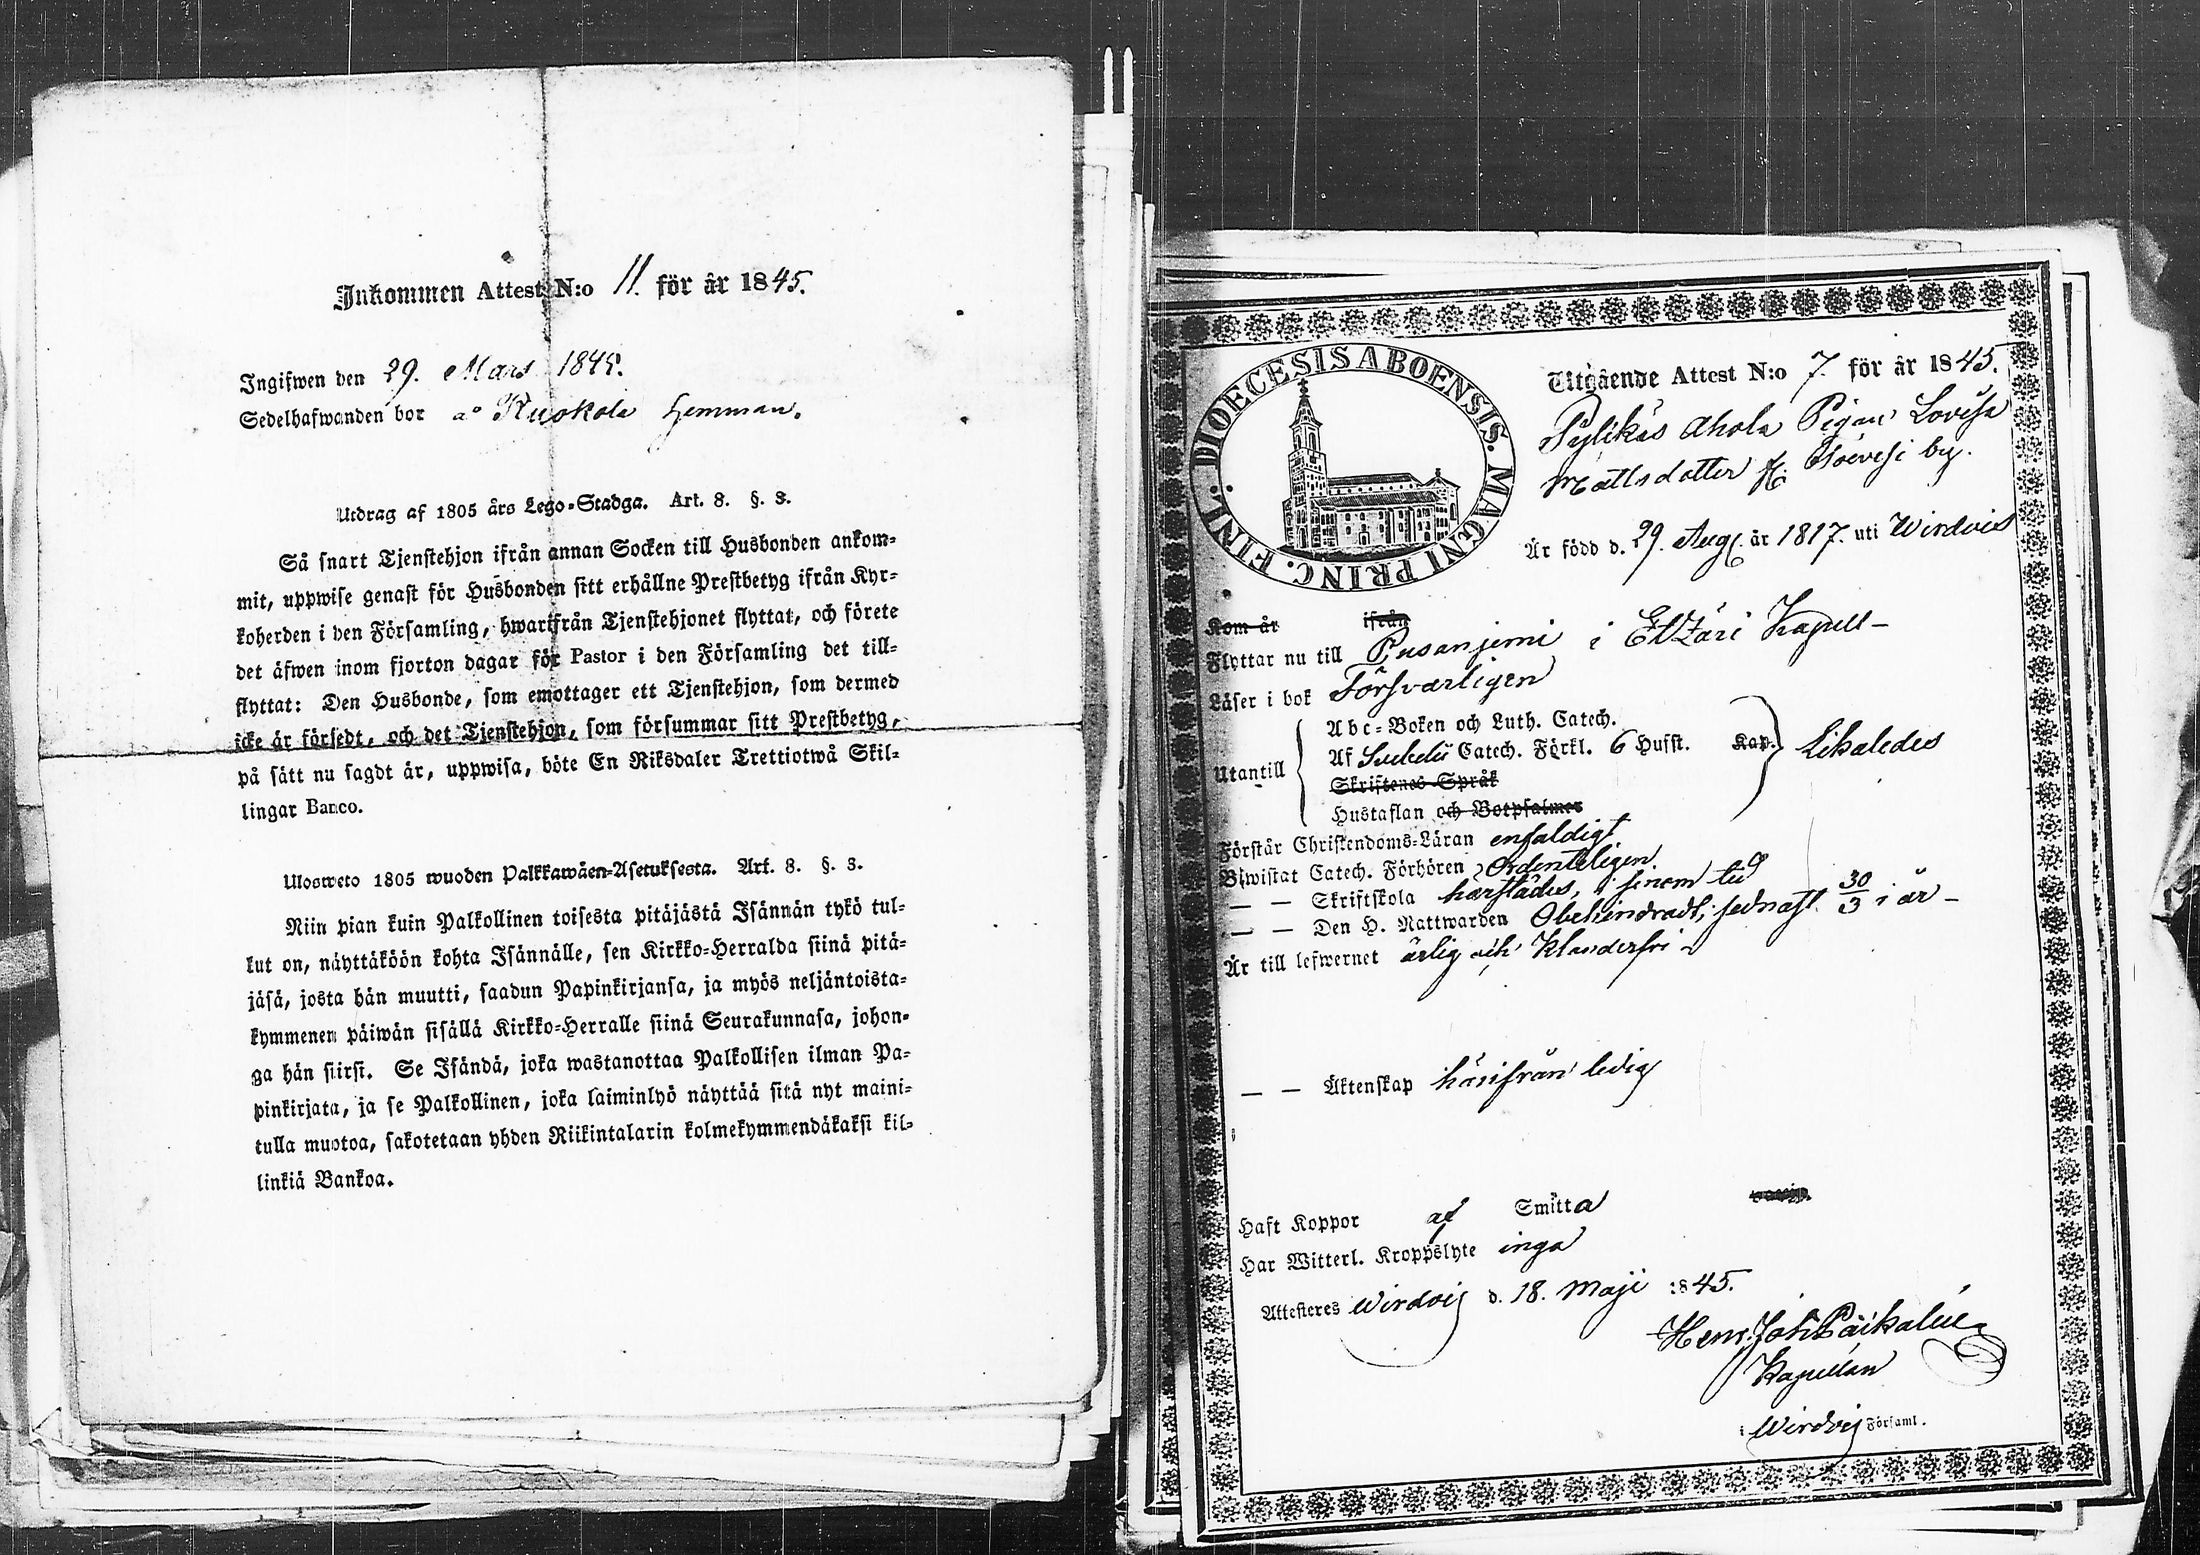 Inkommen Attest N:o 11. för år 1845.
Ingifwen den 29. Mars 1845.
Sedelhafwanden bor å Ruokola hemman.
Utdrag af 1805 års Lego-Stadga. Art. 8. §. 3.
Så snart Tjenstehjon ifrån annan Socken till Husbonden ankom-
mit, uppwise genast för Husbonden sitt erhållne Prestbetyg ifrån Kyr-
koherden i den Församling, hwarifrån Tjenstehjonet flyttat, och förete
det äfwen inom fjorton dagar för Pastor i den Församling det till-
flyttat: Den Husbonde, som emottager ett Tjenstehjon, som dermed
icke är försedt, och det Tjenstehjon, som försummar sitt Prestbetyg,
på sätt nu sagdt är, uppwisa, böte En Riksdaler Trettiotwå Skil-
lingar Banco.
Ulosweto 1805 wuoden Palkkawäen-Asetuksesta. Art. 8. §. 3.
Niin pian kuin Palkollinen toisesta pitäjästä Isännän tykö tul-
lut on, näyttäköön kohta Isännälle, sen Kirkko-Herralda siinä pitä-
jäsä, josta hän muutti, saadun Papinkirjansa, ja myös neljäntoista-
kymmenen päiwän sisällä Kirkko-Herralle siinä Seurakunnasa, johon-
ga hän siirsi. Se Isändä, joka wastanottaa Palkollisen ilman Pa-
pinkirjata, ja se Palkollinen, joka laiminlyö näyttää sitä nyt maini-
tulla muotoa, sakotetaan yhden Riikintalarin kolmekymmendäkaksi kil-
linkiä Bankoa.
DIOECESIS ABOENSIS. MAGNI PRINC. FINL.
Utgående Attest N:o 7. för år 1845.
Ahola Pigan Lovisa
Mattsdotter by.
Är född d. 29. Aug. år 1817. uti Wirdois
Kom år ifrån
Flyttar nu till Pusanjemi i Etzäri Kapell-
Läser i bok Försvarligen
Abc-Boken och Luth. Catech.
Utantill Af Svebelii Catech. Förkl. 6 Hufst. Kap. Likaledes
Skriftenes Språk
Hustaflan och Botpsalmer
Förstår Christendoms-Läran enfaldigt
Biwistat Catech. Förhören Ordentligen.
— — Skriftskola härstädes, i sinom tid
— — Den H. Nattwarden Obehindradt, sednast 30/3 i år -
Är till lefwernet ärlig och klanderfri
— — Äktenskap härifrån ledig
Haft Koppor af Smitta vaccin.
Har Witterl. Kroppslyte inga
Attesteres Wirdois d. 18. Maji 1845.
Henr. Joh.
Kapellan
i Wirdois Församl.